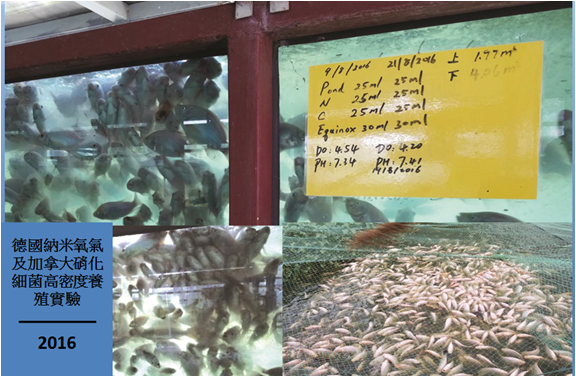 9/8/2016 21/8/2016 上 1.77m³
Pond 25ml 25ml 下
N 25ml 25ml
C 25ml 25ml
Equinox 30ml 30ml
DO:4.54 DO:4.20
PH:7.34 PH:7.41
德國納米氧氣
及加拿大硝化
細菌高密度養
殖實驗
2016